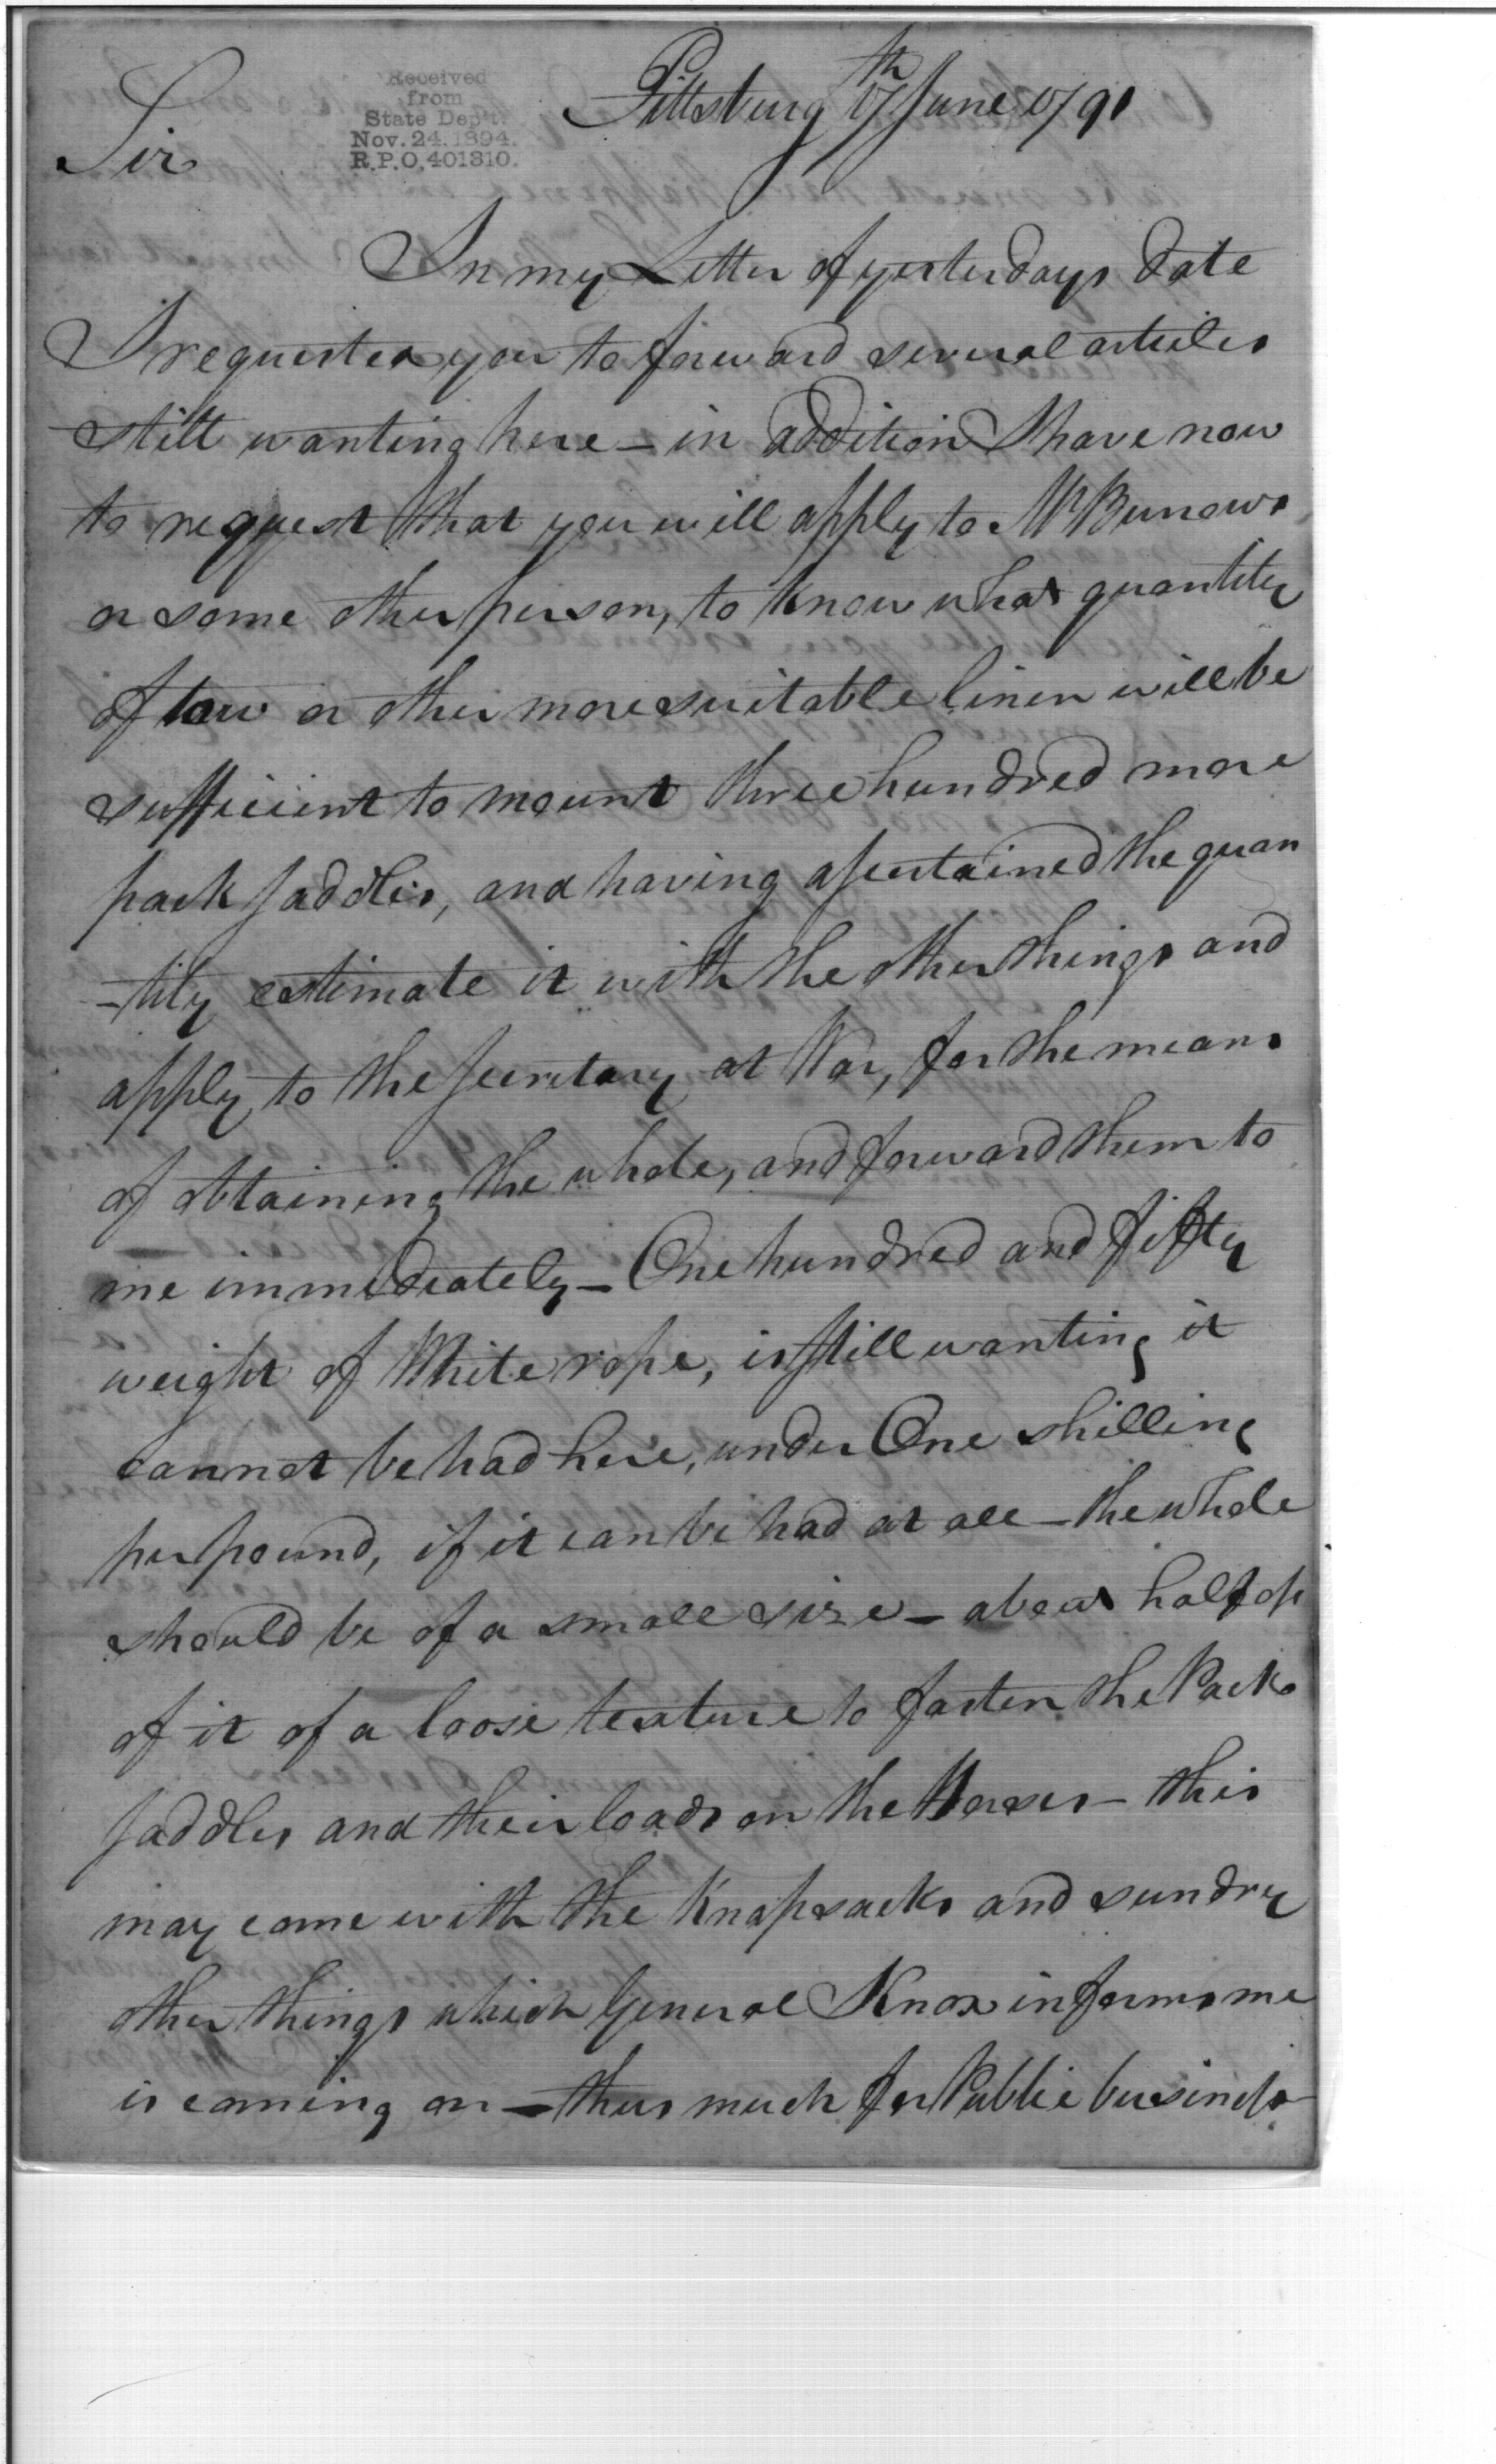 Received
from
State Dep't.
Nov. 24. 1894.
R.P.O. 401310.
Pittsburg 17th June 1791
Sir
In my Letter of yesterdays date
I requested you to forward several articles
still wanting here — in addition I have now
to request that you will apply to Mr Burrows
or some other person, to know what quantity
of tow or other more suitable linen will be
sufficient to mount three hundred more
pack saddles, and having assertained the quan
-tity estimate it with the other things and
apply to the Secretary at War, for the means
of obtaining the whole, and forward them to
me immediately — One hundred and fifty
weight of White rope, is still wanting it
cannot be had here, under One shilling
per pound, if it can be had at all — the whole
should be of a small size — about half of
of it of a loose texture to fasten the Pack
saddles and their loads on the Horses — this
may come with the Knapsacks and sundry
other things which General Knox informs me
is coming on — thus much for Public business